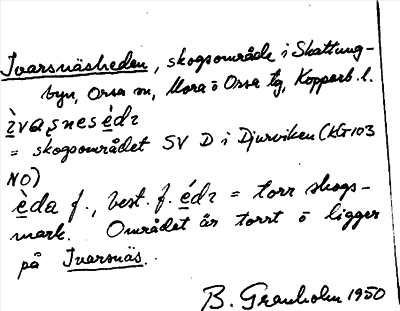 Ivarsnäsheden, skogsområde i Skattung-
byn, Orsa sn, Mora o Orsa tg, Kopparb. l.
= skogsområdet SV D i Djurviken (KG 103
NO)
èda f., best. f. = torr skogs-
mark. Området är torrt o ligger
på Ivarsnäs.
B. Granholm 1950